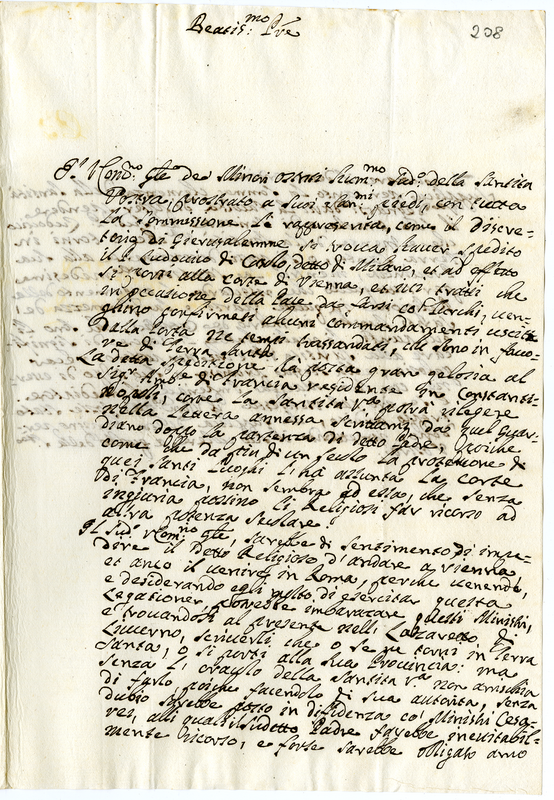 208
Beatis.mo Pre
Il Com.o Gle de Minori osserti hum.mo Sud.o della Santità
Vostra, prostrato a suoi San.mi piedi, con tutta
la sommissione, Le rappresenta, come il Discre-
torio di Gierusalemme si trova haver spedito
il P. Ludovico di Carlo, detto di Milano, et ad effetto
si porti alla Corte di Vienna, et ivi tratti che
in occasione della Pace da farsi co' Turchi, ven-
ghino confirmati alcuni commandamenti usciti
dalla Porta ne tempi trassandati, che sono in favo-
re di Terra Santa.
La detta speditione hà dato gran gelosia al
Sig.r Amb.re di Francia residente in Constanti-
nopoli, come la Santità V.a potrà vedere
nella lettera annessa scrittami da quel Guar-
diano doppo la partenza di detto Padre, poiche
come che da più di un secolo la protettione di
quei Santi Luoghi l'hà assunta la Corte
di Francia, non sembra ad essa, che senza
ingiuria possino li Religiosi far ricorso ad
altra potenza secolare.
Il sud.o Com.rio Gle, sarebbe di sentimento di impe-
dire il detto Religioso d'andare a Vienna
et anco il venire in Roma, perche venendo,
e desiderando egli molto di esercitar questa
Legatione, potrebbe imbarazare questi Ministri,
e trovandosi al presente nell' Lazaretto di
Livorno, scriverli che o se ne torni in Terra
Santa, o si porti alla sua Provincia: ma
senza l'oracolo della Santità V.a non arrischia
di farlo poiche facendolo di sua autorità, senza
dubio sarebbe posto in diffidenza co' Ministri Cesa-
rei, alli quali il sudetto Padre farebbe inevitabil-
mente ricorso, e forse sarebbe obligato anco